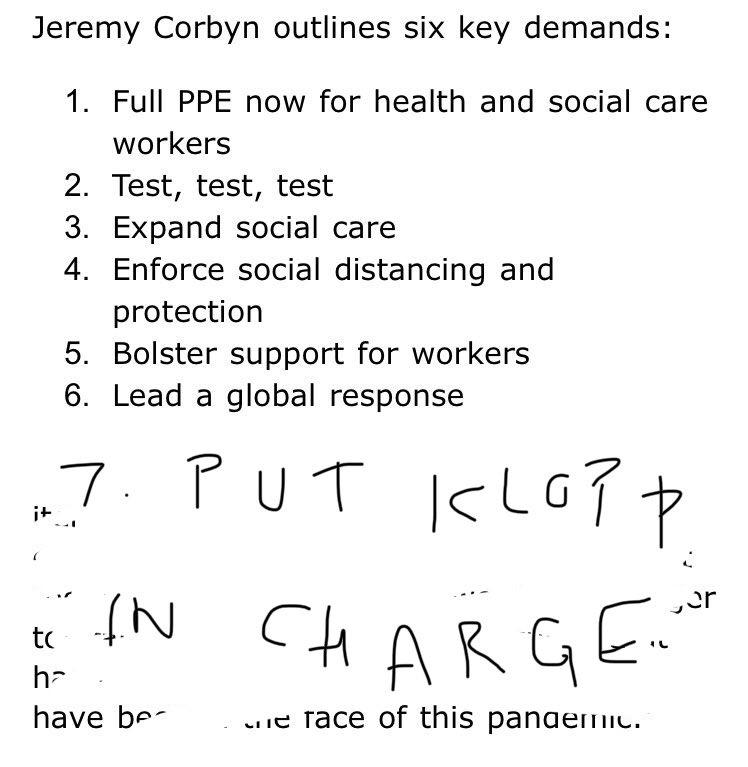 Jeremy Corbyn outlines six key demands:
1. Full PPE now for health and social care
workers
2. Test, test, test
3. Expand social care
4. Enforce social distancing and
protection
5. Bolster support for workers
6. Lead a global response
7. PUT KLOPP
IN CHARGE
have face of this pandemic.